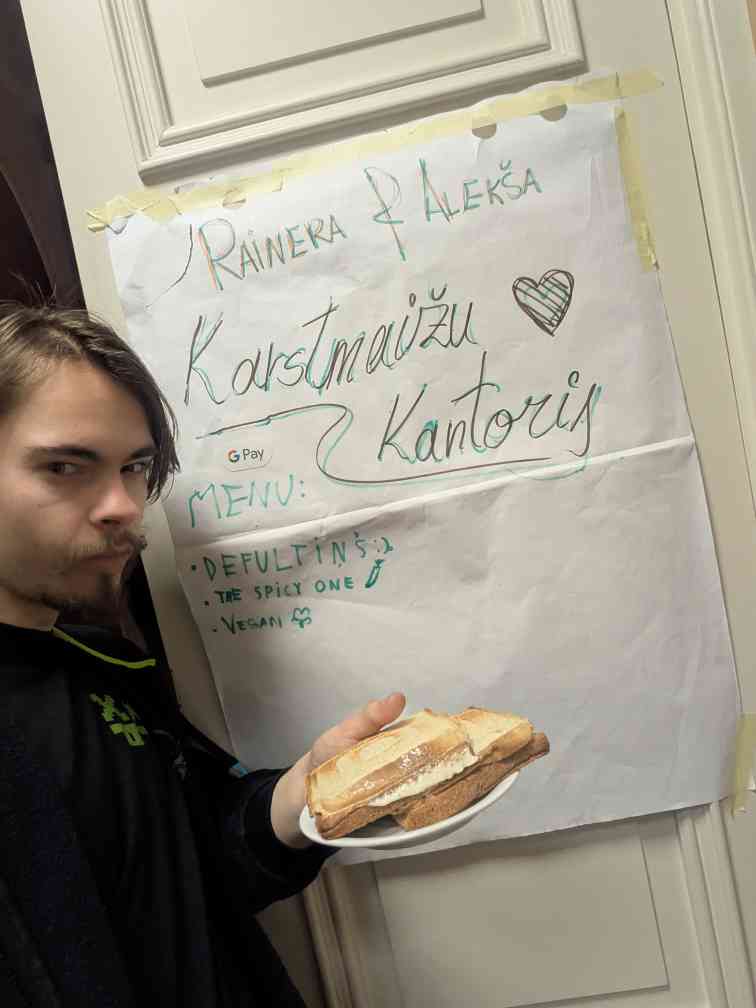 RAINERA & ALEKŠA
Karstmaižu
Kantoris
G Pay
MENU:
• DEFULTIŅŠ :)
• THE SPICY ONE
• VEGAN